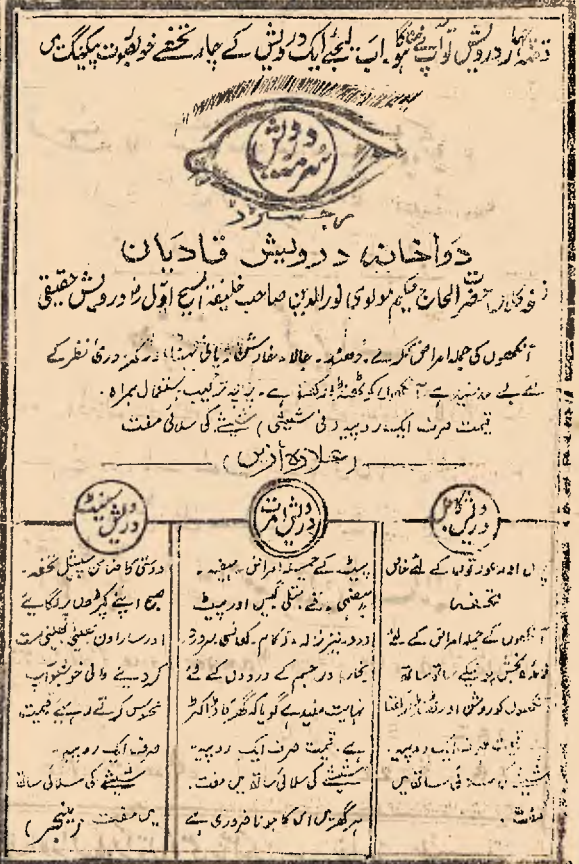 قصہ چہار درویش تو آپ نے سنا ہوگا۔ اب لیجئے ایک درویش کے چار تحفے خوبصورت پیکنگ میں
درویش
سرمہ
دواخانہ درویش قادیان
حضرت الحاج حکیم مولوی نورالدین صاحب خلیفۃ المسیح اول رضہ درویش حقیقی
آنکھوں کی جملہ امراض ککرے۔ دھند۔ جالا۔ پانی بہنا اور کمزوری نظر کے
لئے بے حد مفید ہے۔ آنکھوں کو ٹھنڈا رکھتا ہے۔ ترکیب استعمال ہمراہ۔
قیمت صرف ایک روپیہ (فی شیشی) شیشے کی سلائی مفت
(علاوہ ازیں)
درویش کاجل
بچوں اور عورتوں کے لئے خاص
تحفہ
آنکھوں کے جملہ امراض کے لئے
فائدہ بخش ہونیکے ساتھ ساتھ
آنکھوں کو روشن اور
قیمت صرف ایک روپیہ۔
شیشے کی ساتھ میں
مفت۔
درویش امرت
پیٹ کے جملہ امراض۔ ہیضہ۔
بدہضمی۔ قے۔ متلی گیس اور پیٹ
درد نیز نزلہ۔ زکام۔ کھانسی سردرد
بخار اور جسم کے دردوں کے لئے
نہایت مفید ہے گویا کہ گھر کا ڈاکٹر
ہے۔ قیمت صرف ایک روپیہ
شیشے کی سلائی ساتھ میں مفت۔
ہر گھر میں اس کا ہونا ضروری ہے
درویش سینٹ
دوستی کا ضامن سپیشل تحفہ۔
صبح اپنے کپڑوں پر لگایئے
اور سارا دن بھینی بھینی مست
کر دینے والی خوشبو آپ
محسوس کرتے رہیئے قیمت
صرف ایک روپیہ۔
شیشے کی سلائی ساتھ
میں مفت (مینجر)